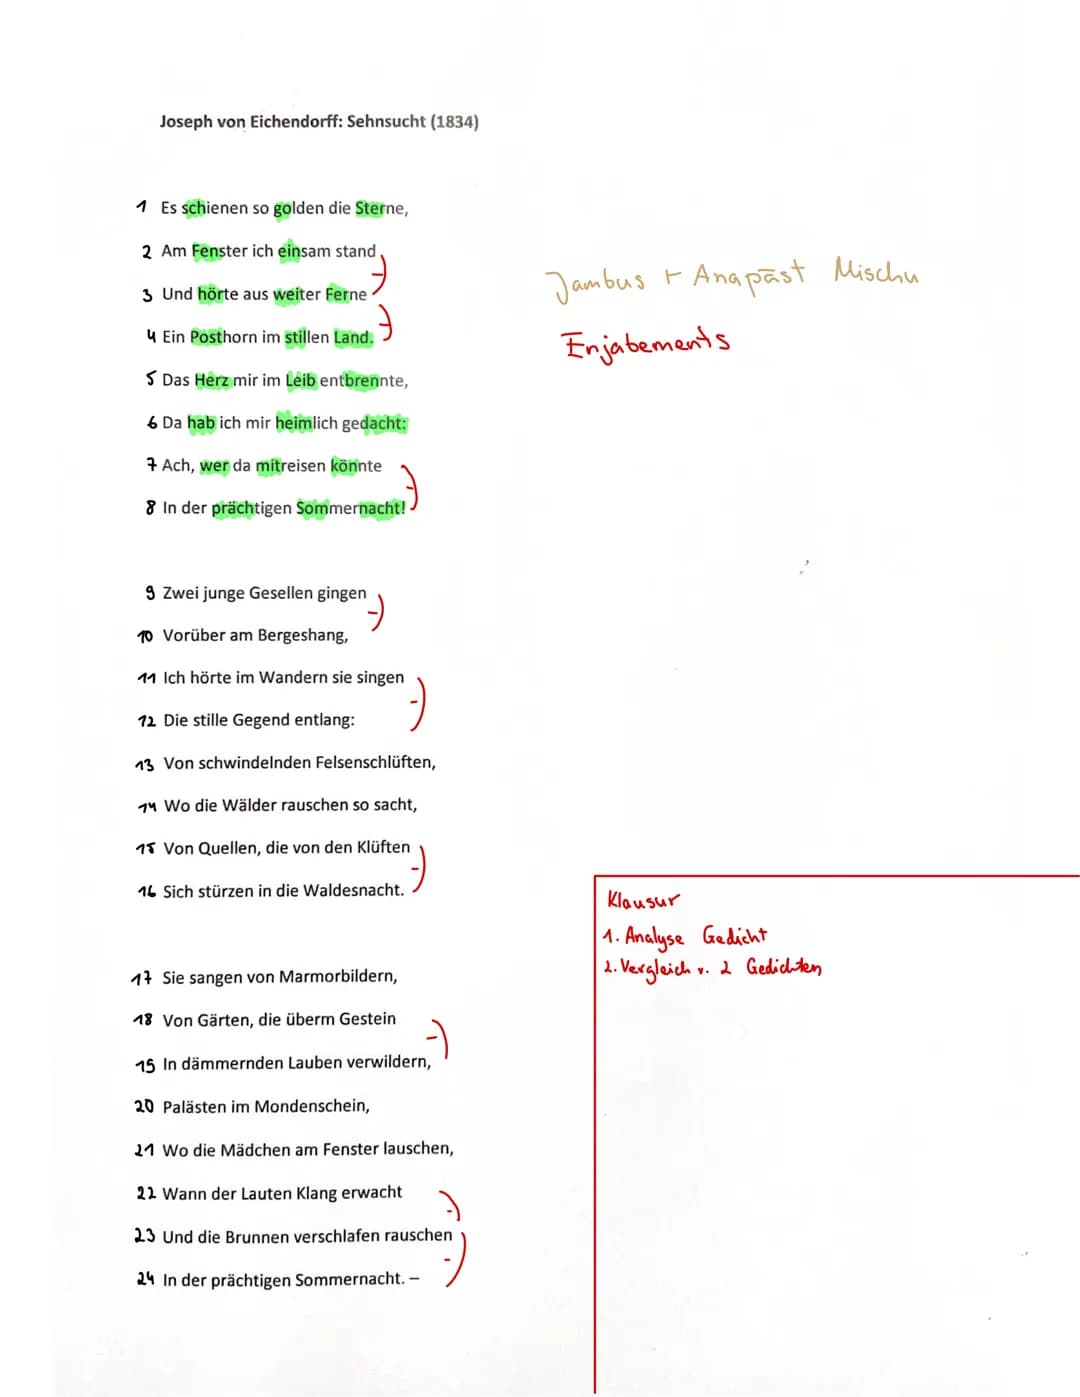 Joseph von Eichendorff: Sehnsucht (1834)
1 Es schienen so golden die Sterne,
2 Am Fenster ich einsam stand
3 Und hörte aus weiter Ferne
4 Ein Posthorn im stillen Land.
5 Das Herz mir im Leib entbrennte,
6 Da hab ich mir heimlich gedacht:
7 Ach, wer da mitreisen könnte
8 In der prächtigen Sommernacht!
Jambus + Anapäst Mischu
Enjabements
9 Zwei junge Gesellen gingen
10 Vorüber am Bergeshang,
11 Ich hörte im Wandern sie singen
12 Die stille Gegend entlang:
13 Von schwindelnden Felsenschlüften,
14 Wo die Wälder rauschen so sacht,
15 Von Quellen, die von den Klüften
16 Sich stürzen in die Waldesnacht.
17 Sie sangen von Marmorbildern,
18 Von Gärten, die überm Gestein
15 In dämmernden Lauben verwildern,
20 Palästen im Mondenschein,
21 Wo die Mädchen am Fenster lauschen,
22 Wann der Lauten Klang erwacht
23 Und die Brunnen verschlafen rauschen
24 In der prächtigen Sommernacht. –
Klausur
1. Analyse Gedicht
2. Vergleich v. 2 Gedichten